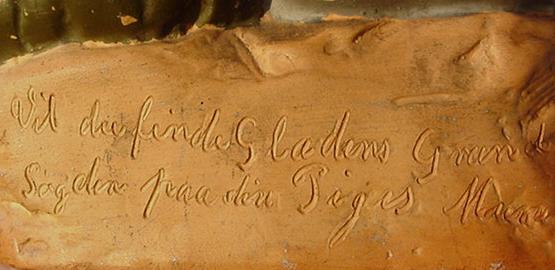 Vil du finde Glædens Grund
Søg den paa din Piges Mund